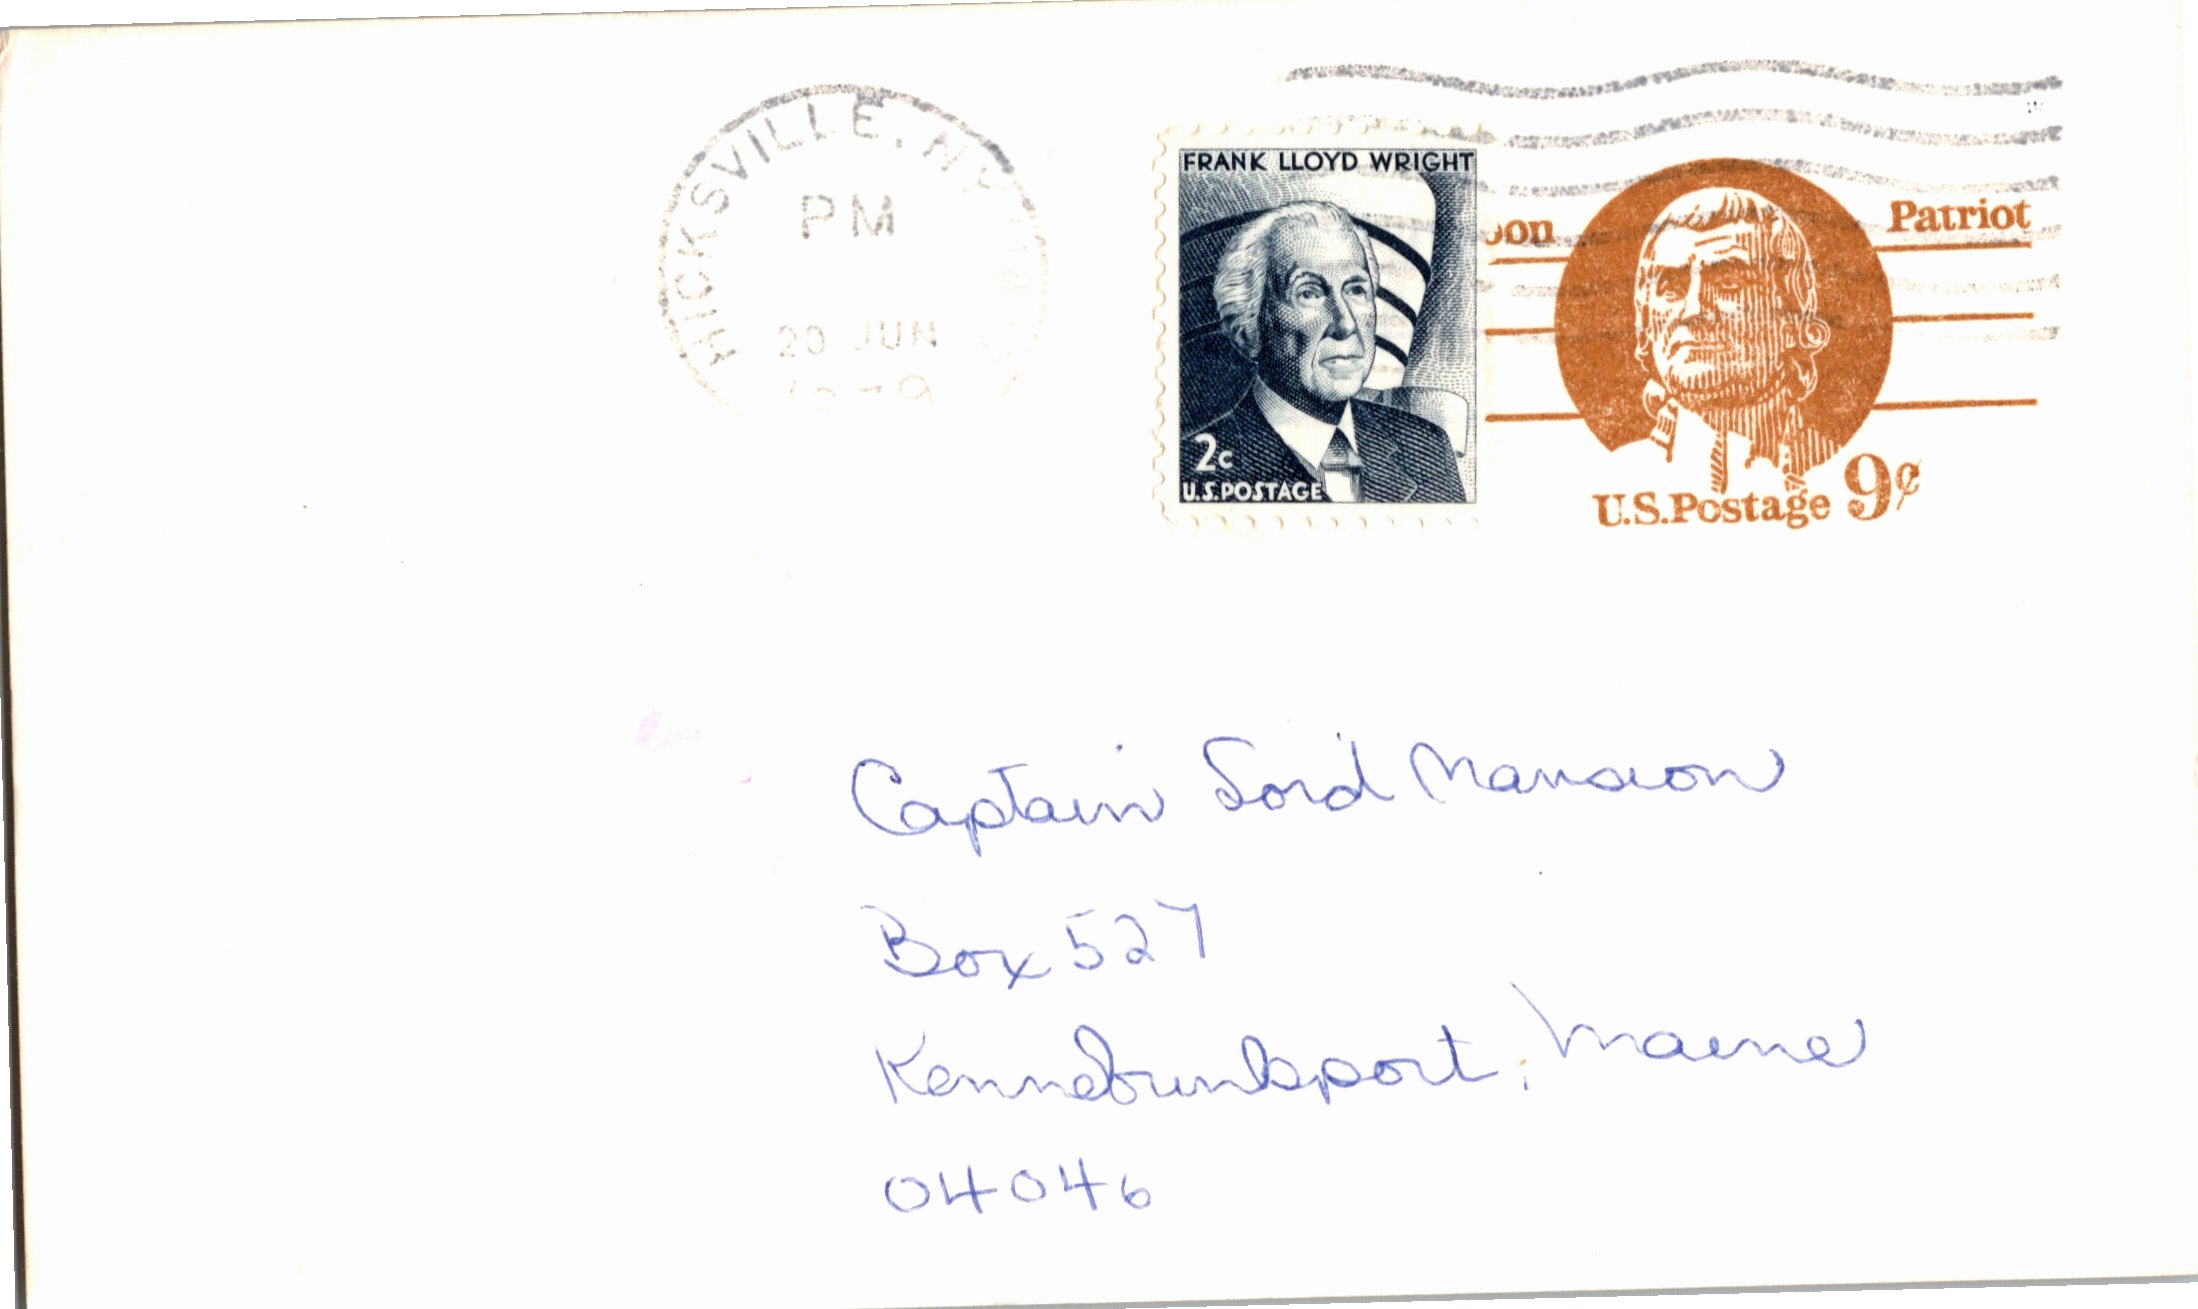 HICKSVILLE, NY
PM
20 JUN
FRANK LLOYD WRIGHT
2c
U.S. POSTAGE
Patriot
U.S. Postage 9¢
Captain Lord Mansion
Box 527
Kennebunkport, Maine
04046